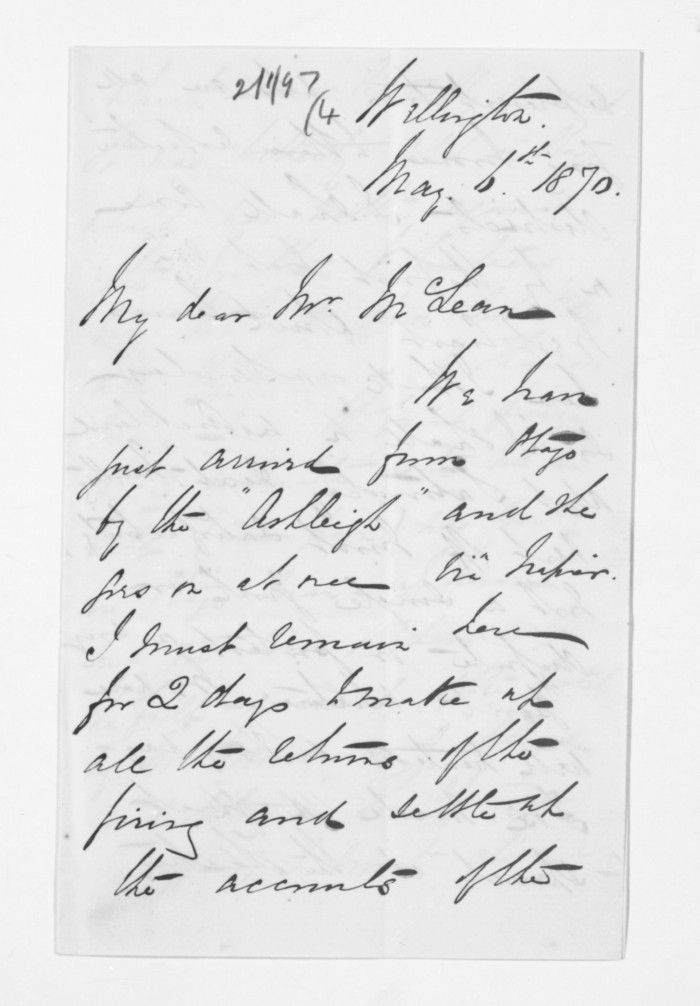 21/1/97
(4 Wellington.
May. 6.th 1870.
My dear Mr. McLean
We have
just arrived from Otago
by the "Ashleigh" and she
goes on at once via Napier.
I must remain here
for 2 days to make up
all the returns of the
firing and settle up
the accounts of the